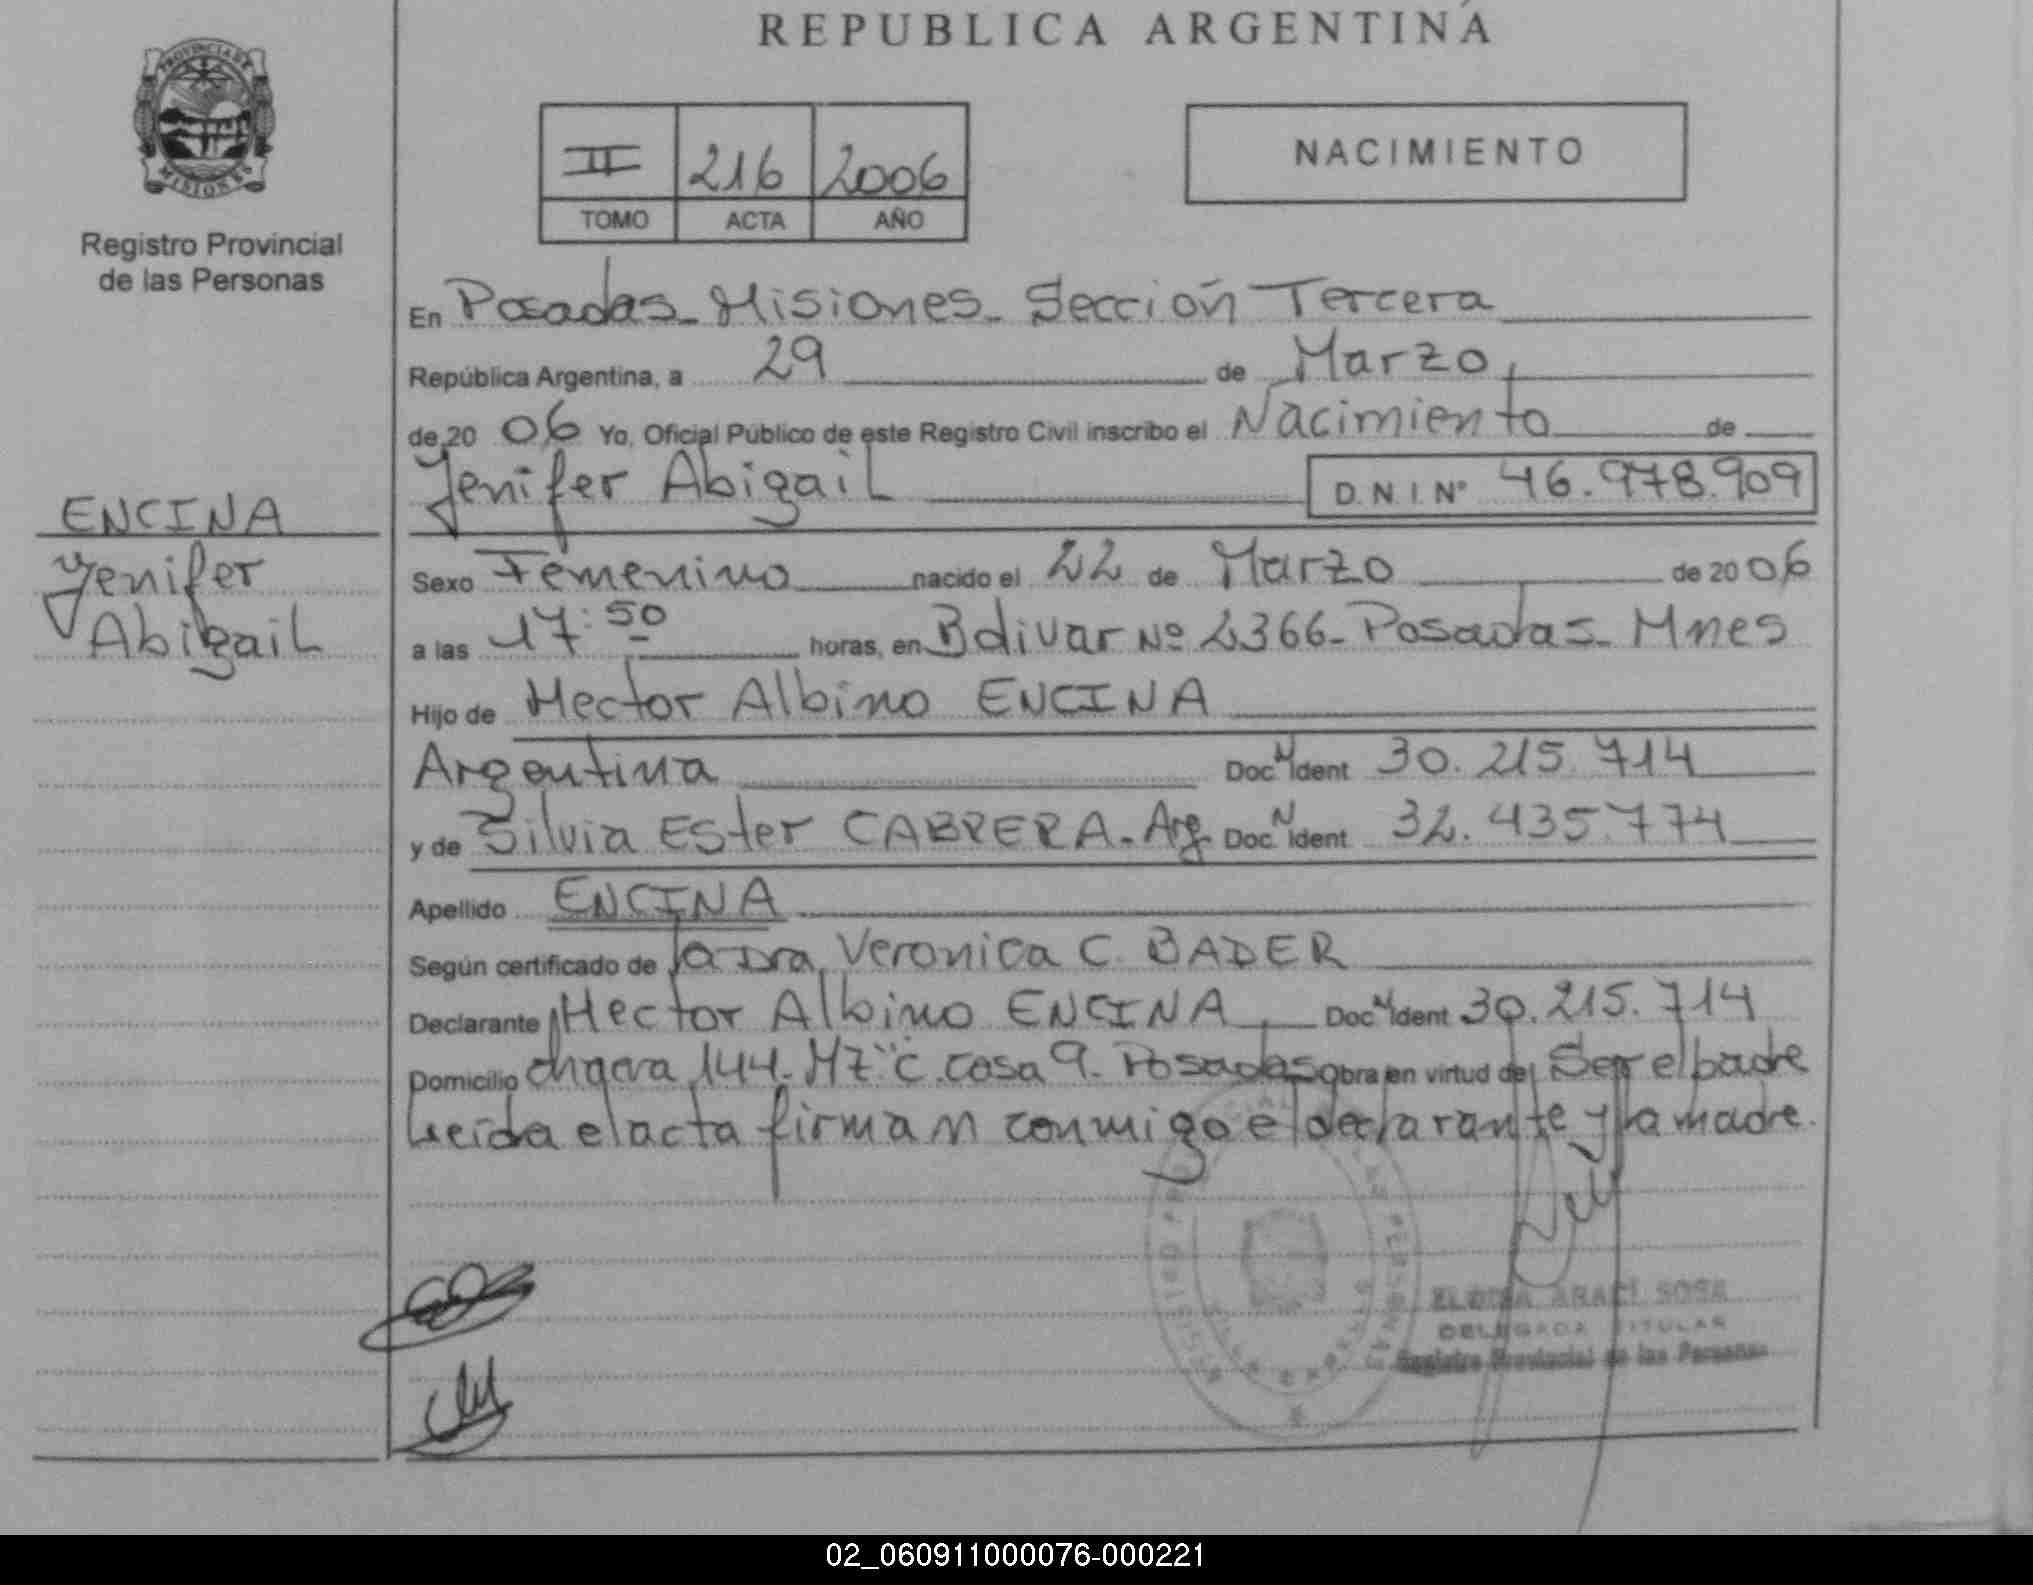 REPUBLICA ARGENTINA
PROVINCIA DE
MISIONES
Registro Provincial
de las Personas
II 216 2006
TOMO ACTA AÑO
NACIMIENTO
En Posadas - Misiones - Sección Tercera
República Argentina, a 29 de Marzo,
de 20 06 Yo, Oficial Público de este Registro Civil inscribo el Nacimiento de
Jenifer Abigail D.N.I. Nº 46.978.909
ENCINA
Jenifer
Abigail
Sexo Femenino nacido el 22 de Marzo de 20 06
a las 17:50 horas, en Bolivar Nº 2366 - Posadas - Mnes
Hijo de Hector Albino ENCINA
Argentina Doc N Ident 30.215.714
y de Silvia Ester CABRERA - Arg. Doc N Ident 32.435.774
Apellido ENCINA
Según certificado de la Dra. Veronica C. BADER
Declarante Hector Albino ENCINA Doc N Ident 30.215.714
Domicilio chacra 144 - Mz "C" casa 9 - Posadas obra en virtud de Ser el padre
Leída el acta firman conmigo el declarante y la madre.
ARACÍ SOSA
DELEGADA TITULAR
Registro Provincial de las Personas
02_060911000076-000221